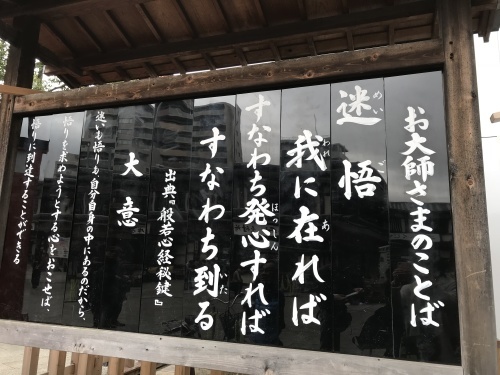 お大師さまのことば
迷悟
めいご
我に在れば
われ あ
すなわち発心すれば
ほっしん
すなわち到る
いた
出典『般若心経秘鍵』
大意
迷いも悟りも、自分自身の中にあるのだから、
悟りを求めようとする心をおこせば、
悟りに到達することができる